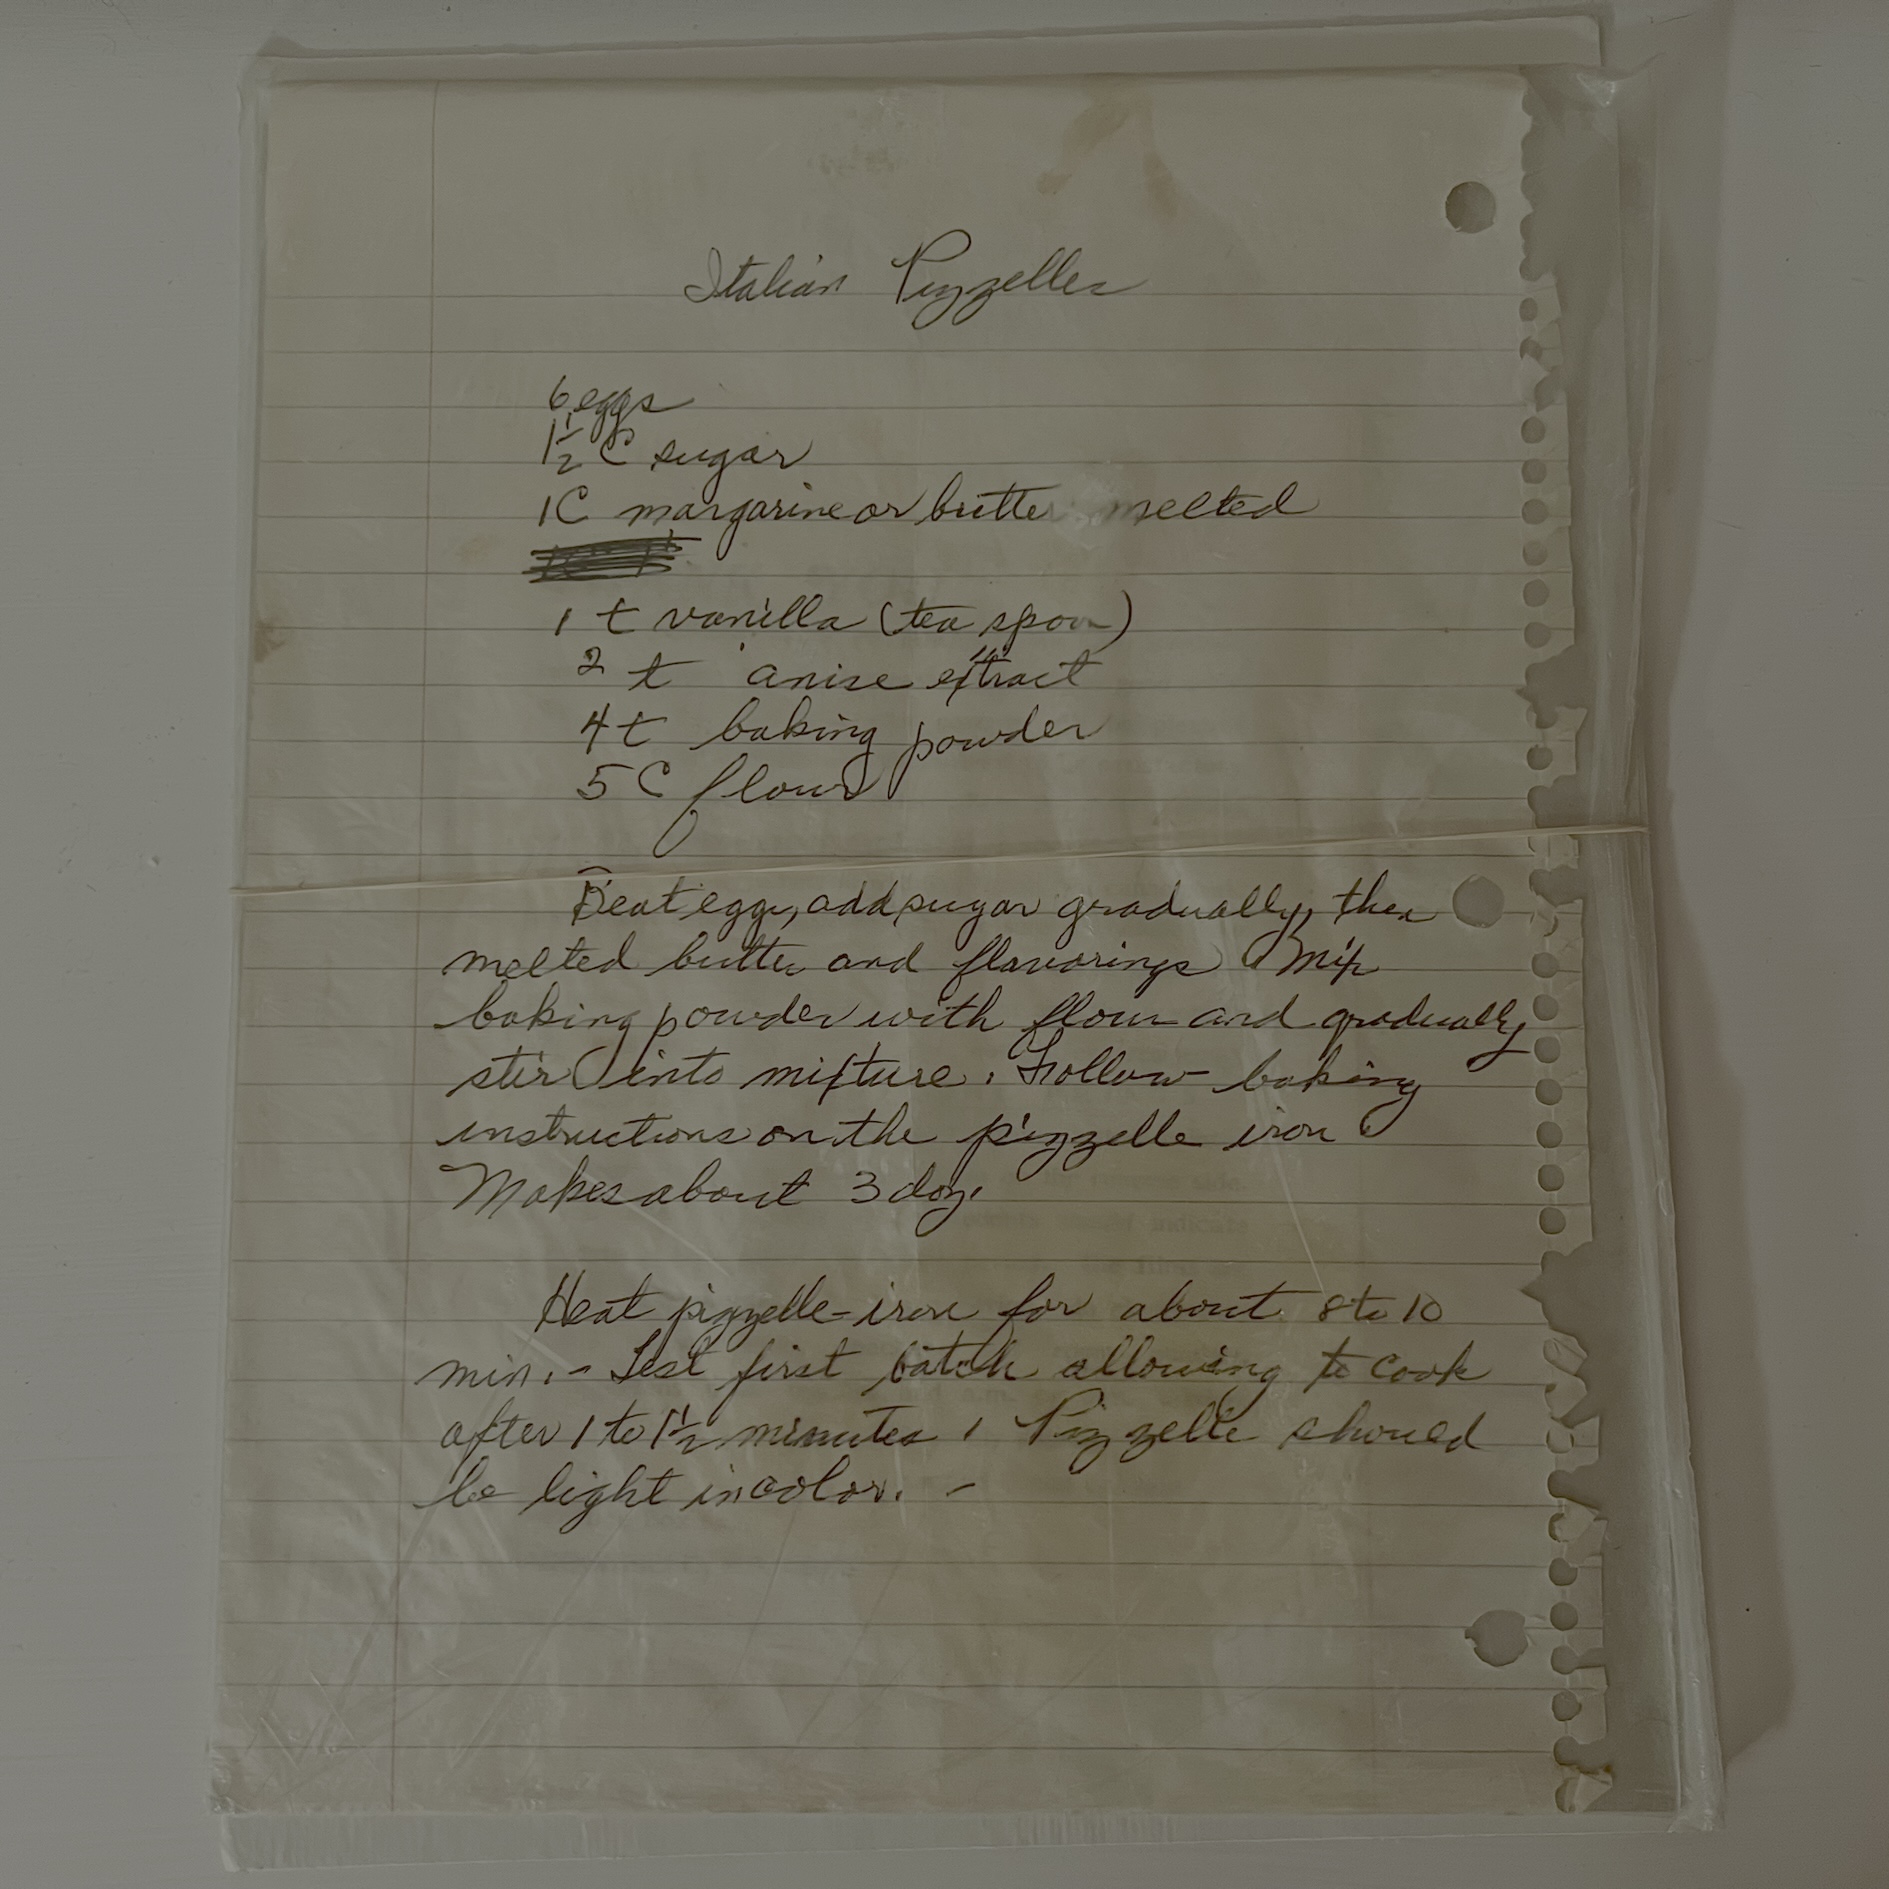 Italian Pizzelles
6 eggs
1 1/2 C sugar
1C margarine or butter melted
1 t vanilla (teaspoon)
2 t anise extract
4 t baking powder
5 C flour
Beat eggs, add sugar gradually, then
melted butter and flavorings. Mix
baking powder with flour and gradually
stir into mixture. Follow baking
instructions on the pizzelle iron.
Makes about 3 doz.
Heat pizzelle-iron for about 8 to 10
min. - Test first batch allowing to cook
after 1 to 1 1/2 minutes. Pizzelle should
be light in color. -